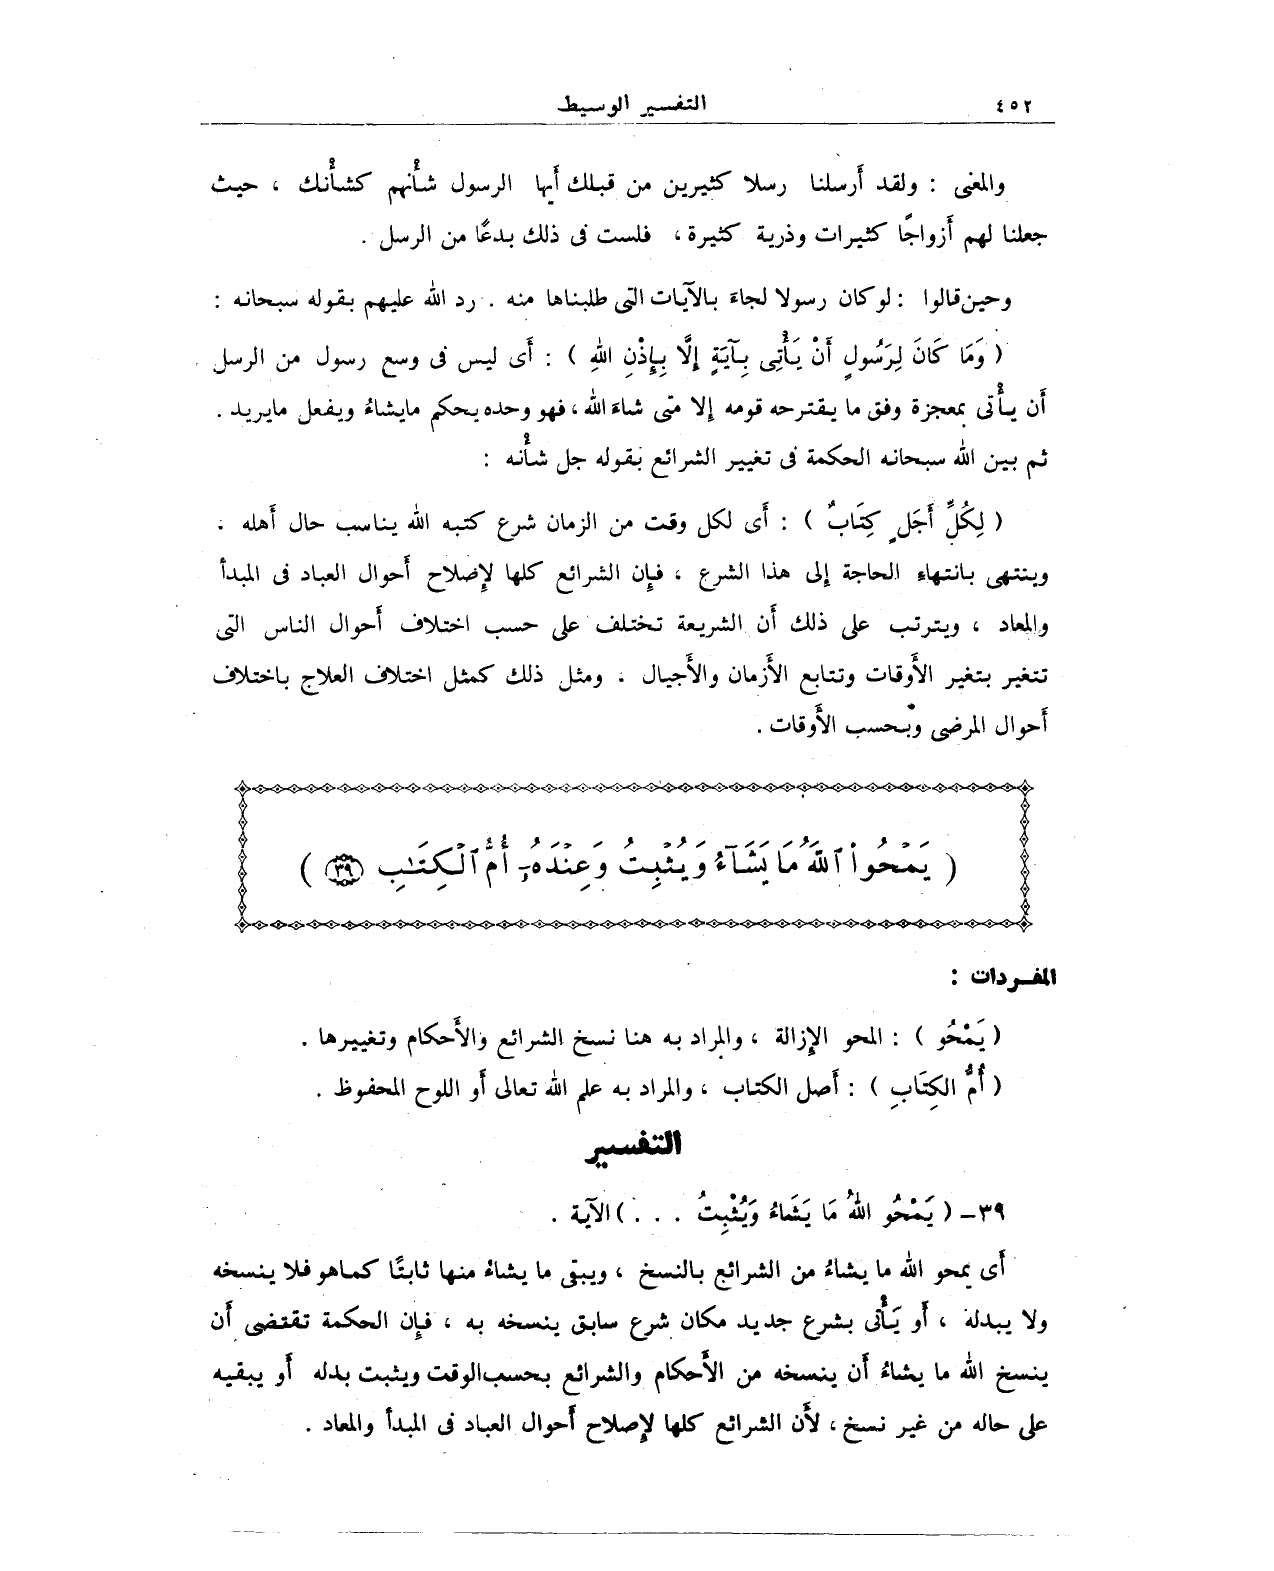 ٤٥٢
التفسير الوسيط
والمعنى : ولقد أرسلنا رسلا كثيرين من قبلك أيها الرسول شأْنهم كشأْنك ، حيث
جعلنا لهم أزواجًا كثيرات وذرية كثيرة ، فلست فى ذلك بدعًا من الرسل .
وحين قالوا : لو كان رسولا لجاءَ بالآيات التى طلبناها منه . رد الله عليهم بقوله سبحانه :
( وَمَا كَانَ لِرَسُولٍ أَنْ يَأْتِى بِآيَةٍ إِلَّا بِإِذْنِ اللهِ ) : أى ليس فى وسع رسول من الرسل
أن يأْتى بمعجزة وفق ما يقترحه قومه إلا متى شاءَ الله ، فهو وحده يحكم مايشاءُ ويفعل مايريد .
ثم بين الله سبحانه الحكمة فى تغيير الشرائع بقوله جل شأْنه :
( لِكُلِّ أَجَلٍ كِتَابٌ ) : أى لكل وقت من الزمان شرع كتبه الله يناسب حال أهله .
وينتهى بانتهاءِ الحاجة إلى هذا الشرع ، فإن الشرائع كلها لإِصلاح أحوال العباد فى المبدأ
والمعاد ، ويترتب على ذلك أن الشريعة تختلف على حسب اختلاف أحوال الناس التى
تتغير بتغير الأوقات وتتابع الأزمان والأجيال . ومثل ذلك كمثل اختلاف العلاج باختلاف
أحوال المرضى وبحسب الأوقات .
( يَمْحُوا۟ ٱللَّهُ مَا يَشَآءُ وَيُثْبِتُ وَعِندَهُۥٓ أُمُّ ٱلْكِتَـٰبِ ﴿٣٩﴾ )
المفردات :
( يَمْحُو ) : المحو الإِزالة ، والمراد به هنا نسخ الشرائع والأَحكام وتغييرها .
( أُمُّ الكِتَابِ ) : أصل الكتاب ، والمراد به علم الله تعالى أو اللوح المحفوظ .
التفسير
٣٩- ( يَمْحُو اللهُ مَا يَشَاءُ وَيُثْبِتُ . . . ) الآية .
أى يمحو الله ما يشاءُ من الشرائع بالنسخ ، ويبقى ما يشاءُ منها ثابتًا كما هو فلا ينسخه
ولا يبدله ، أو يَأْتى بشرع جديد مكان شرع سابق ينسخه به ، فإن الحكمة تقتضى أن
ينسخ الله ما يشاءُ أن ينسخه من الأحكام والشرائع بحسب الوقت ويثبت بدله أو يبقيه
على حاله من غير نسخ ، لأن الشرائع كلها لإِصلاح أحوال العباد فى المبدأ والمعاد .